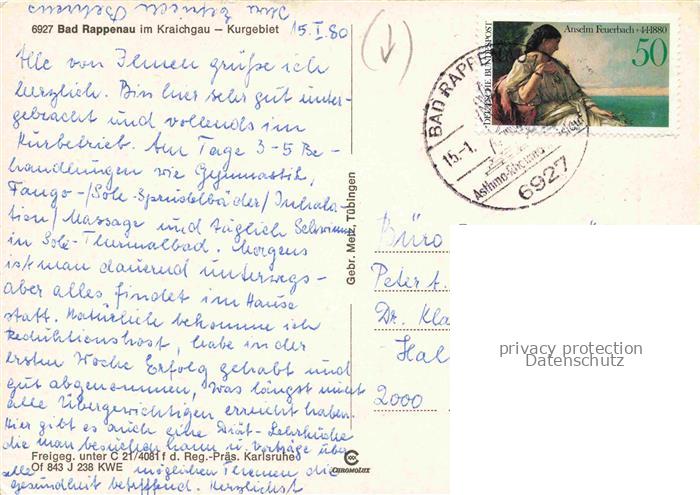 6927 Bad Rappenau im Kraichgau – Kurgebiet
15.I.80
Alle von Ihnen grüße ich
herzlich. Bin hier sehr gut unter-
gebracht und vollends im
Kurbetrieb. Am Tage 3-5 Be-
handlungen wie Gymnastik,
Fango-/Sole-Sprudelbäder/Inhala-
tion/Massage und täglich Schwimmen
in Sole-Thermalbad. Morgens
ist man dauernd unterwegs-
aber alles findet im Hause
statt. Natürlich bekomme ich
Reduktionskost, habe in der
ersten Woche Erfolg gehabt und
gut abgenommen, was längst nicht
alle Übergewichtigen erreicht haben.
Hier gibt es auch eine Diät-Lehrküche
die man besuchen kann u. Vorträge über
alle möglichen Themen die
Gesundheit betreffend. Herzlichst
Ihre
Freigeg. unter C 21/4081 f d. Reg.-Präs. Karlsruhe
Of 843 J 238 KWE
CHROMOLUX
Gebr. Metz, Tübingen
Anselm Feuerbach +4·1·1880
50
DEUTSCHE BUNDESPOST
BAD RAPPENAU
15.-1.
6927
Büro
Peter
Dr. Kla
Hal
2000
privacy protection
Datenschutz